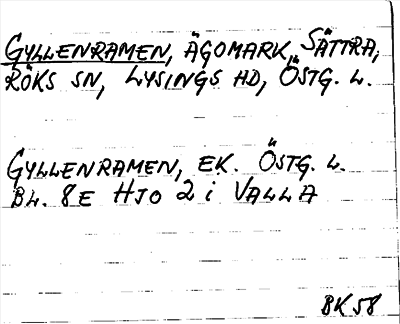 GYLLENRAMEN, ÄGOMARK, SÄTTRA,
RÖKS SN, LYSINGS HD, ÖSTG. L.
GYLLENRAMEN, EK. ÖSTG. L.
BL. 8E HJO 2 i VALLA
BK 58